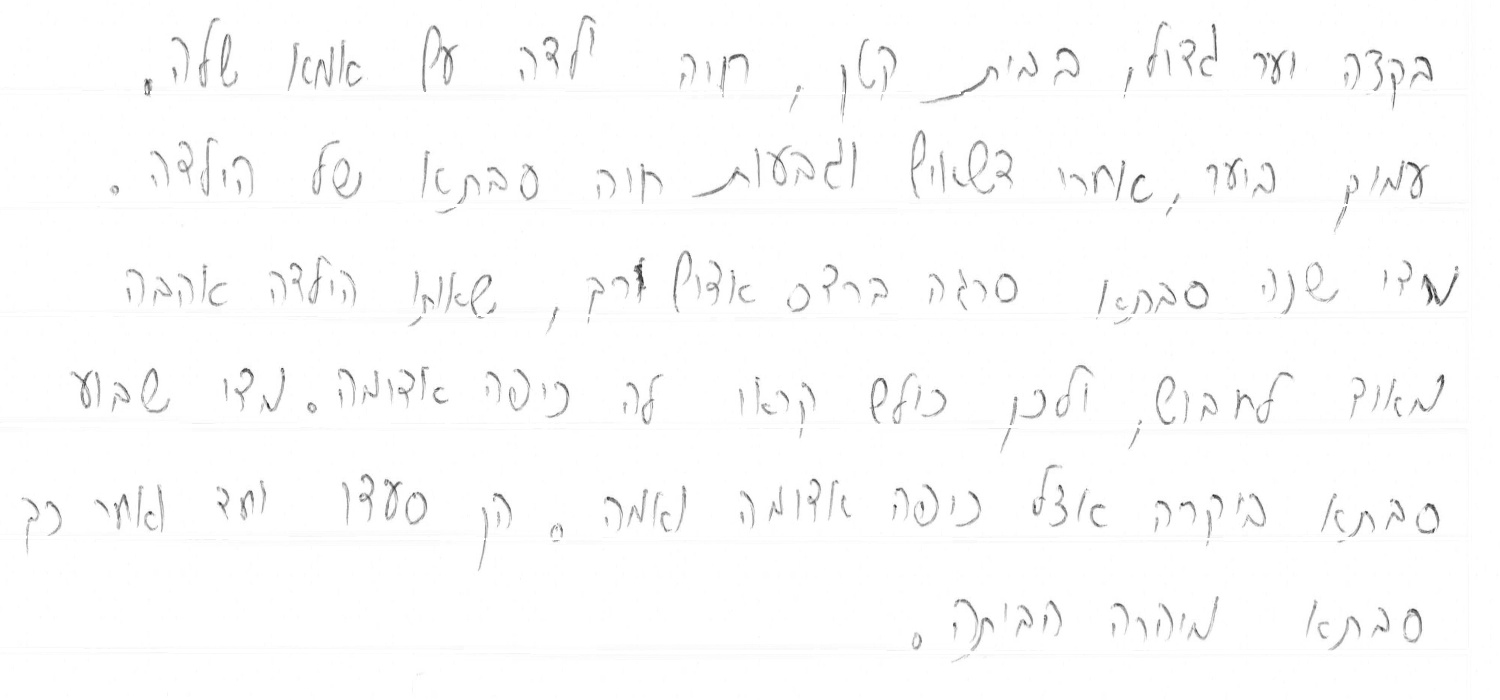 בקצה יער גדול, בבית קטן, חיה ילדה עם אמא שלה.
עמוק ביער, אחרי דשאים וגבעות חיה סבתא של הילדה.
מדי שנה סבתא סרגה ברדס אדום ורך, שאותו הילדה אהבה
מאוד לחבוש, ולכן כולם קראו לה כיפה אדומה. מדי שבוע
סבתא ביקרה אצל כיפה אדומה ואמה. הן סעדו יחד ואחר כך
סבתא מיהרה הביתה.